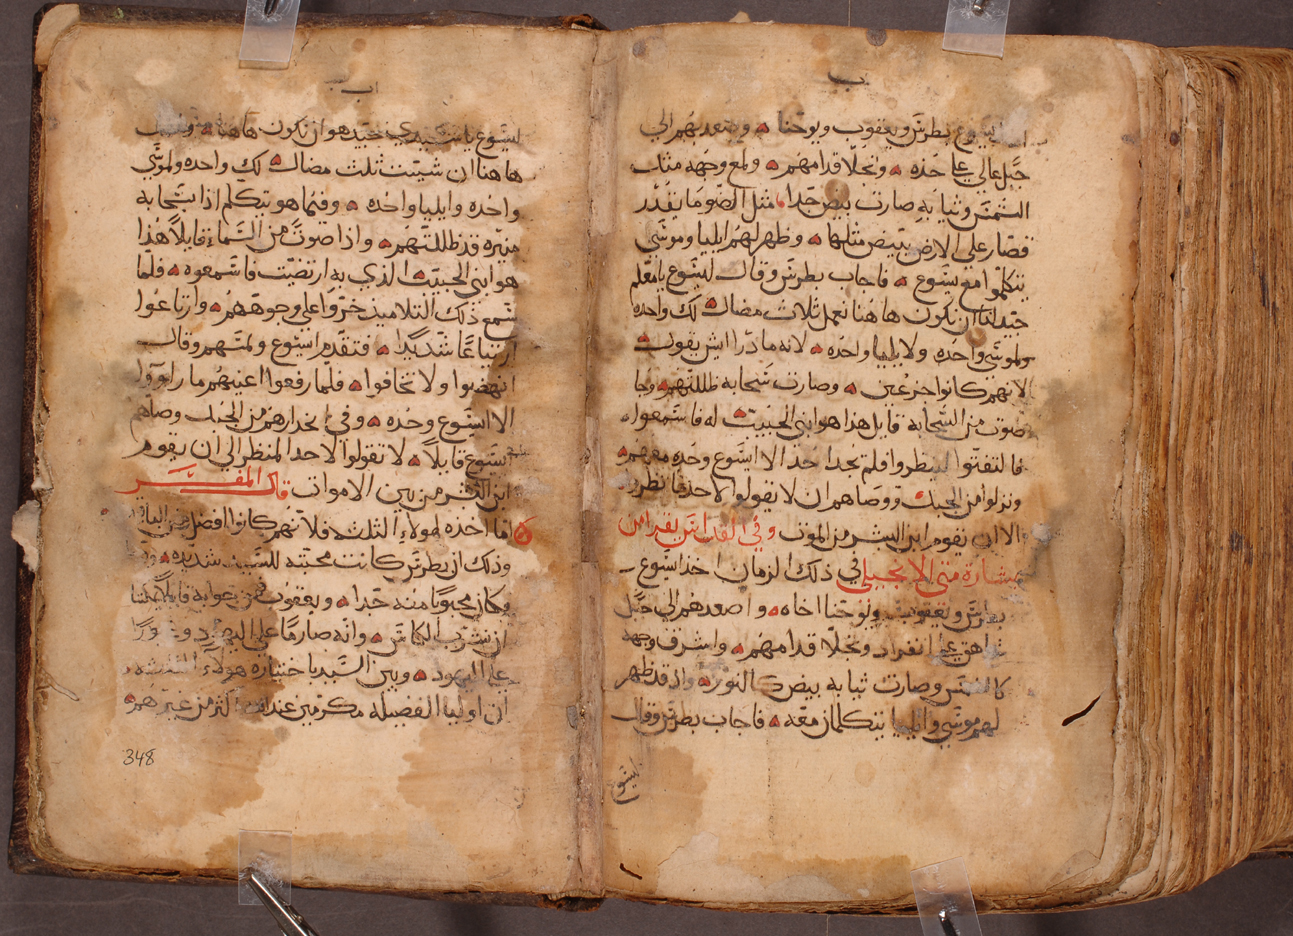 اب
يسوع بطرس ويعقوب ويوحنا وصعد بهم الي
جبل عالي علي حده وتجلا قدامهم ولمع وجهه مثل
الشمس وثيابه صارت بيض جدا مثل الضو ما يقدر
قصار علي الارض يبيض مثلها وظهر لهم ايليا وموسي
يتكلموا مع يسوع فاجاب بطرس وقال ليسوع يا معلم
جيد لنا ان نكون هاهنا نعمل ثلاث مضال لك واحده
ولموسي واحده ولايليا واحده لانه ما درا ايش يقول
لانهم كانوا جزعين وصارت سحابه ظللتهم وجا
صوت من السحابه قايل هذا هو ابني الحبيب له فاسمعوا
فالتفتوا لينظروا فلم يجدا احدا الا ايسوع وحده معهم
ونزلوا من الجبل ووصاهم ان لا يقولوا لاحد ما نظروا
الا ان يقوم ابن البشر من الموت وفي القداس يقرا من
بشارة متي الانجيلي في ذلك الزمان اخذ ايسوع
بطرس ويعقوب ويوحنا اخاه واصعدهم الي جبل
شاهق علي انفراد وتجلا قدامهم واشرف وجهه
كالشمس وصارت ثيابه بيض كالنور واذ قد ظهر
لهم موسي وايليا يتكلمان معه فاجاب بطرس وقال
ليسوع
اب
ليسوع يا سيدي جيد هو ان نكون هاهنا
هاهنا ان شيت ثلث مضال لك واحده ولموسي
واحده وايليا واحده وفيما هو يتكلم اذا بسحابه
نيره قد ظللتهم واذا صوت من السماء قايلا هذا
هو ابني الحبيب الذي به ارتضيت فاسمعوه فلما
سمع ذلك التلاميذ خروا علي وجوههم وارتاعوا
ارتياعا شديدا فتقدم ايسوع ولمسهم وقال
انهضوا ولا تخافوا فلما رفعوا اعينهم ما راووا
الا ايسوع وحده وفي انحدارهم من الجبل وصاهم
ايسوع قايلا لا تقولوا لاحد المنظر الي ان يقوم
ابن البشر من بين الاموات قال المفسر
انما اخذه لهولاء الثلثه فلانهم كانوا افضل من
وذلك ان بطرس كانت محبته للسيد شديده
وكان محبوبا منه جدا ويعقوب فمن جوابه قايلا
ان نشرب الكاس وانه صارما علي اليهود
علي اليهود وبين السيد باختياره هولاء الثلثه
ان اوليا الفضيله مكرمين عنده اكثر من غيرهم
348